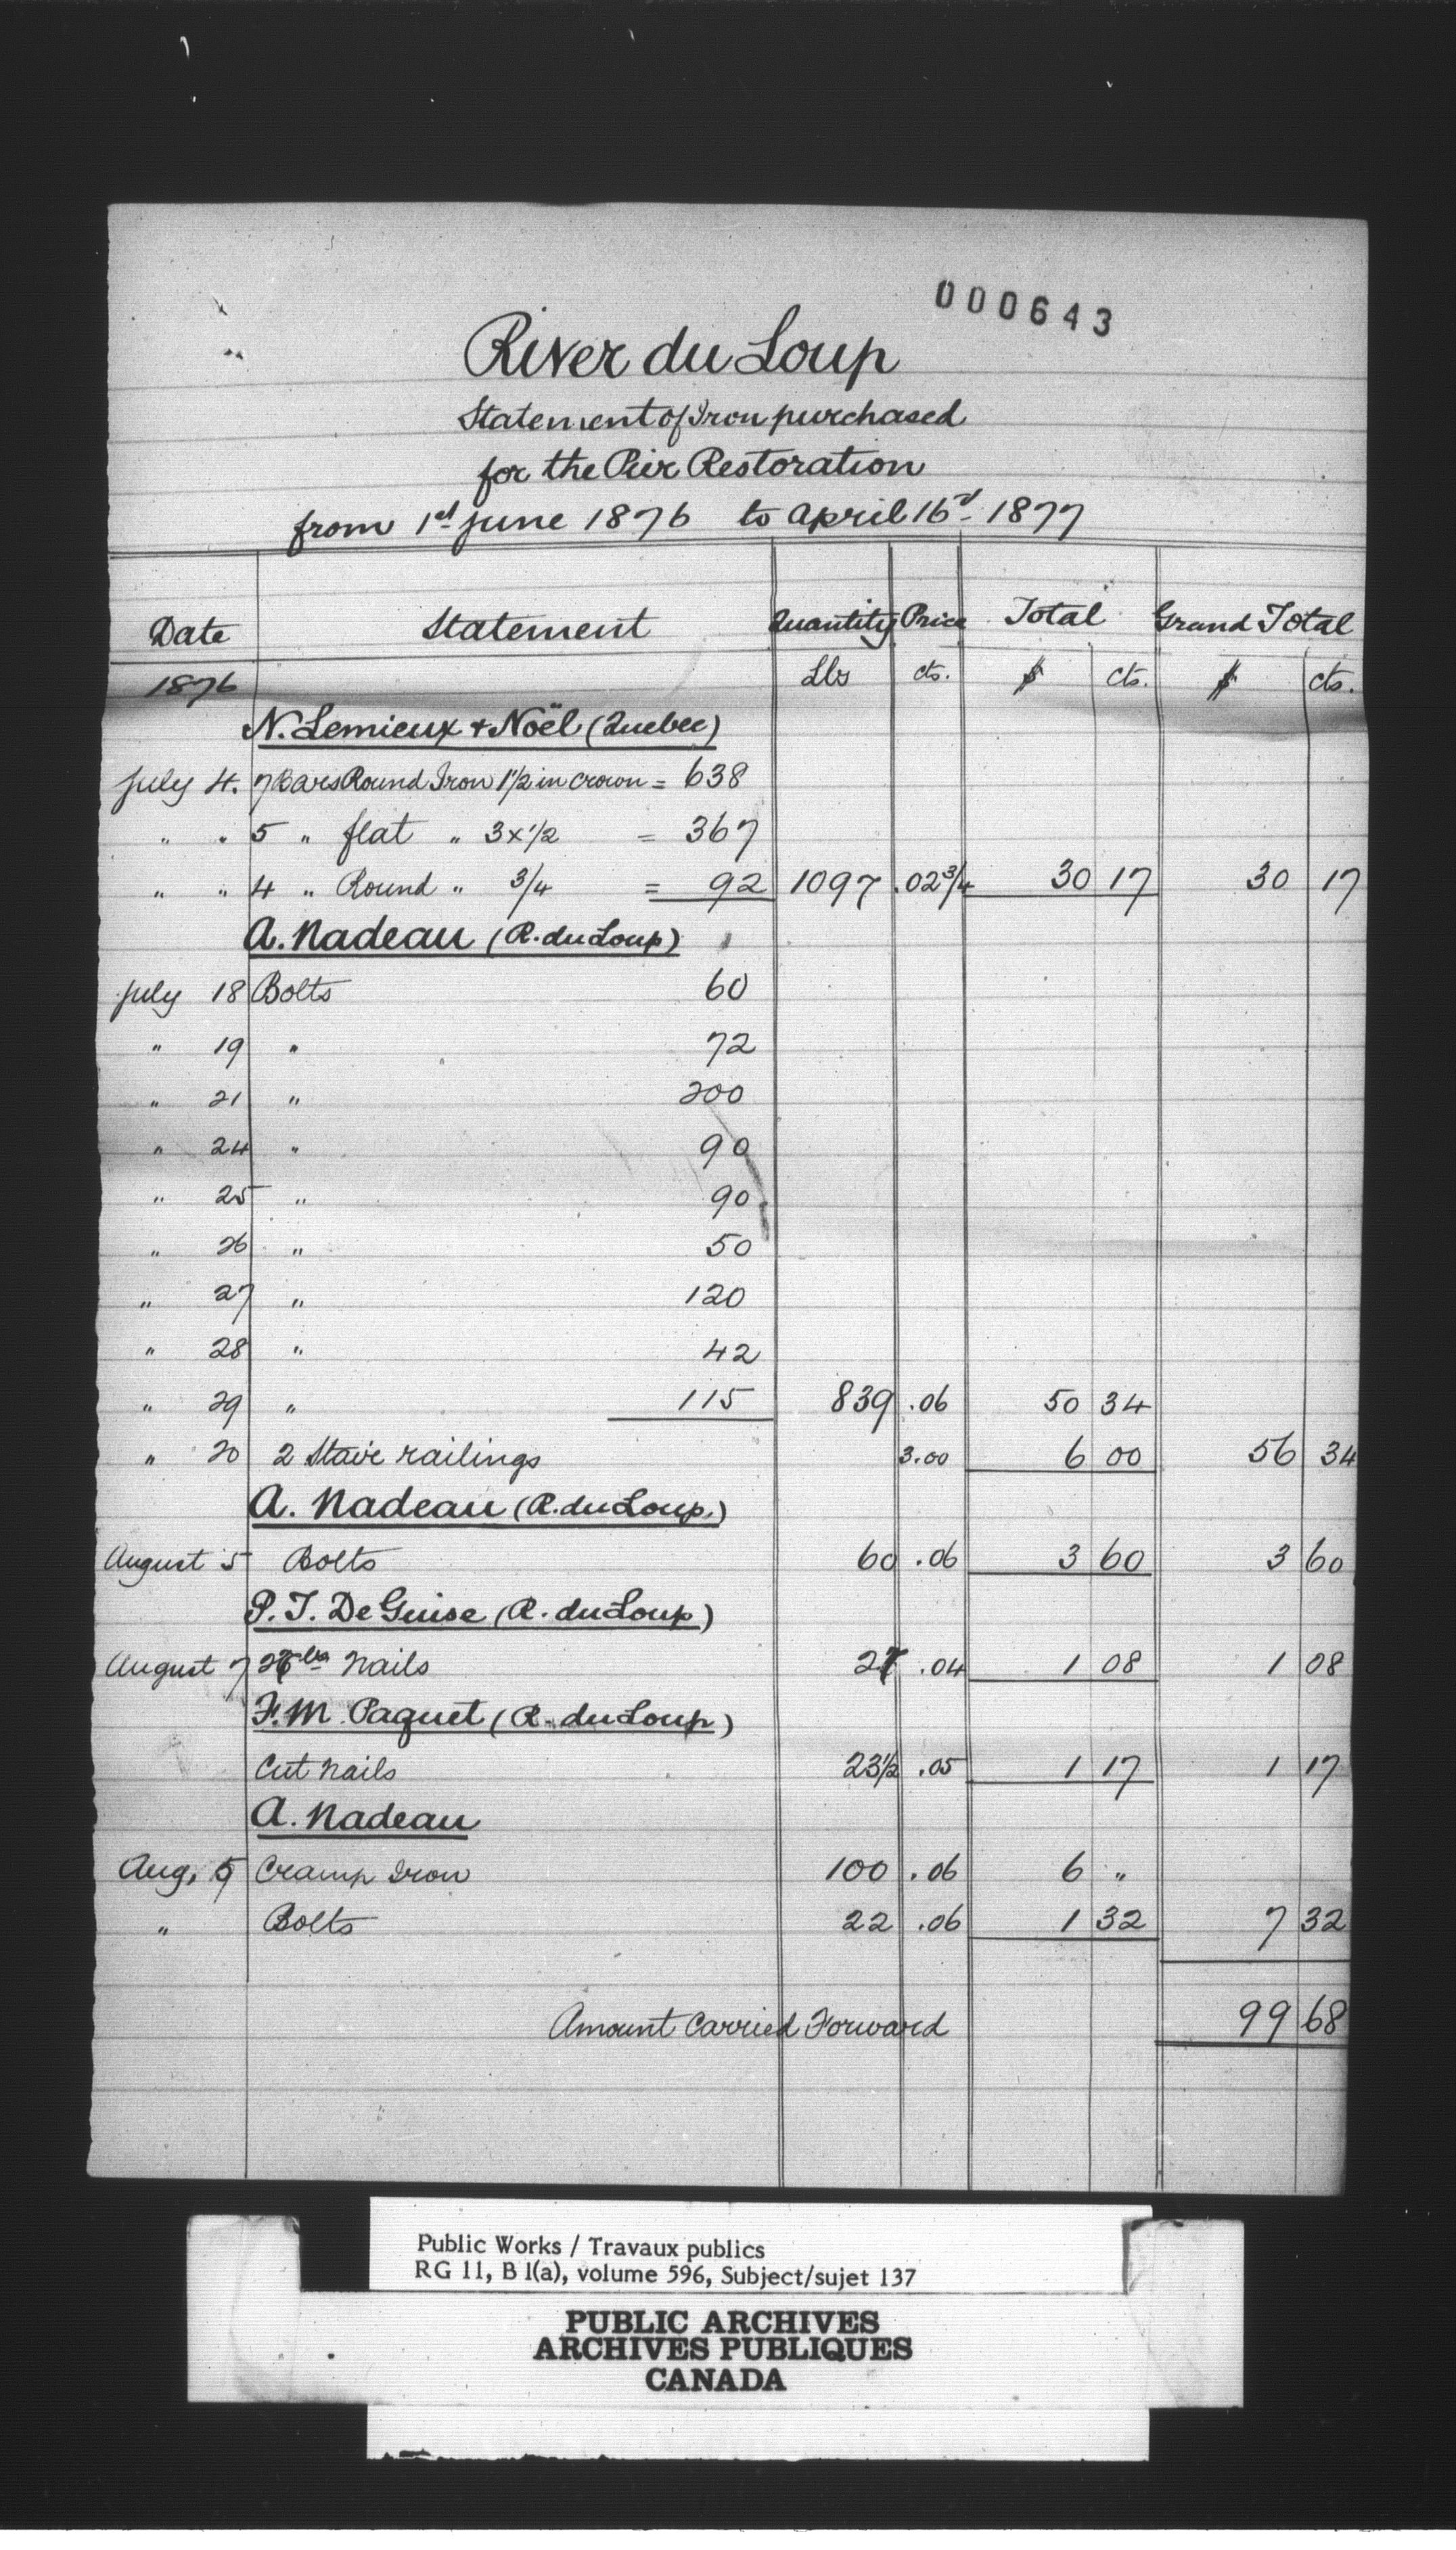 000643
River du Loup
Statement of Iron purchased
for the Pier Restoration
from 1st June 1876 to April 16d 1877
Date Statement Quantity Price Total Grand Total
1876 Lbs cts. $ cts. $ cts.
N. Lemieux & Noël (Quebec)
July 4. 7 Bars Round Iron 1 1/2 in crown = 638
" " 5 " flat " 3x1/2 = 367
" " 4 " Round " 3/4 = 92 1097 .02 3/4 30 17 30 17
A. Nadeau (R. du Loup)
July 18 Bolts 60
" 19 " 72
" 21 " 200
" 24 " 90
" 25 " 90
" 26 " 50
" 27 " 120
" 28 " 42
" 29 " 115 839 .06 50 34
" 20 2 Stair railings 3.00 6 00 56 34
A. Nadeau (R. du Loup.)
August 5 Bolts 60 .06 3 60 3 60
P. T. DeGuise (R. du Loup)
August 7 lbs Nails 27 .04 1 08 1 08
F. M. Paquet (R. du Loup)
Cut Nails 23 1/2 .05 1 17 1 17
A. Nadeau
Aug, Cramp Iron 100 .06 6 "
" Bolts 22 .06 1 32 7 32
Amount Carried Forward 99 68
Public Works / Travaux publics
RG 11, B 1(a), volume 596, Subject/sujet 137
PUBLIC ARCHIVES
ARCHIVES PUBLIQUES
CANADA